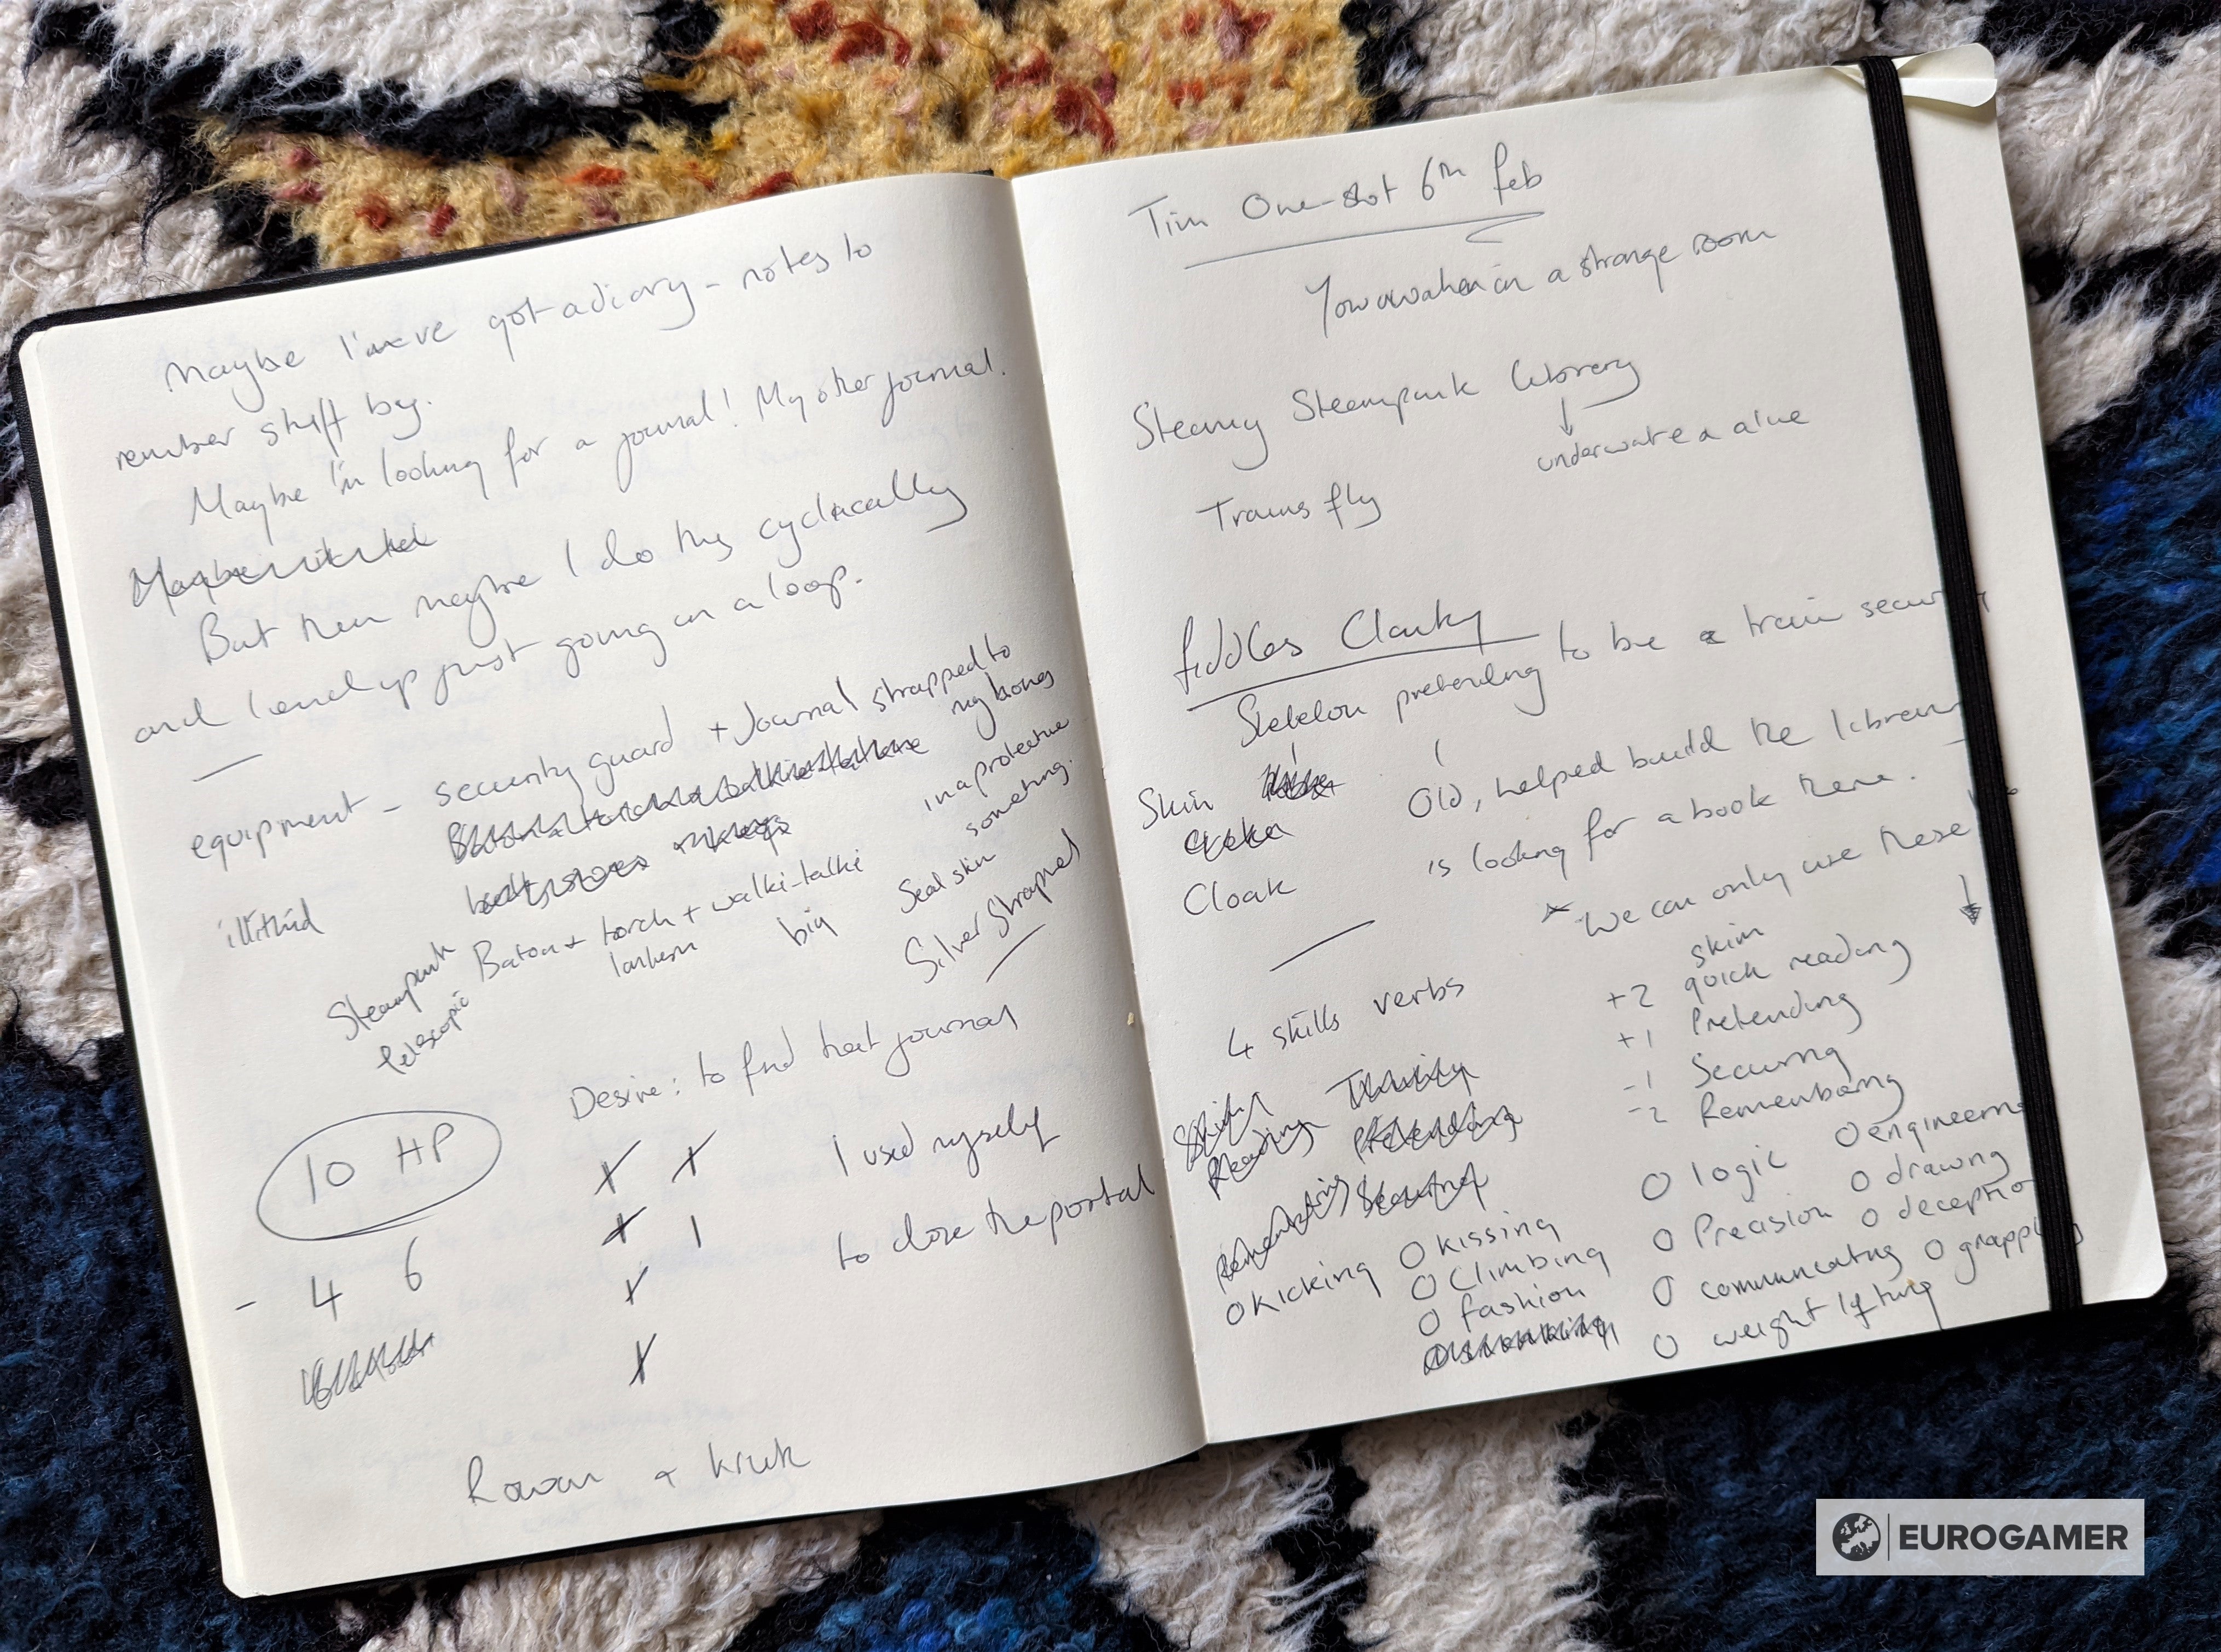 Maybe I've got a diary - notes to
rember stuff by.
Maybe I'm looking for a journal! My other journal.
But then maybe I do this cyclically
and I end up just going in a loop.
equipment - security guard + Journal strapped to
my bones
in a protective
something.
illithid
Steampunk Baton + torch + walki-talki
telescopic
lantern
big
Seal skin
Silver Strapped
Desire: to find that journal
10 HP
I used myself
to close the portal
- 4 6
1
Rowan +
Tim One-shot 6th Feb
You awaken in a strange room
Steamy Steampunk Library
underwater
Trains fly
Fiddles Clanky
Skeleton pretending to be a train
Skin
Old, helped build the
Cloak
is looking for a book there.
We can only use these
4 skills verbs
skim
+2 quick reading
+1 Pretending
-1 Securing
-2 Remembering
O logic
O drawing
O Precision
O communicating
O weight lifting
O kicking O kissing
O Climbing
O fashion
EUROGAMER